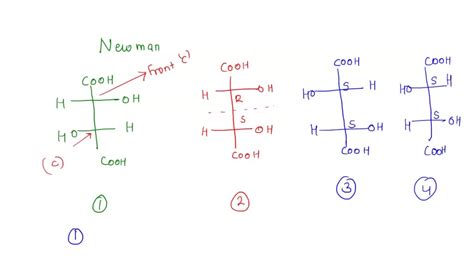 Newman
front 'c'
COOH
H OH
H O H
COOH
(c)
①
COOH
H OH
R
S
H OH
COOH
②
COOH
HO S H
S
H OH
COOH
③
COOH
HO S H
S
H OH
COOH
④
①